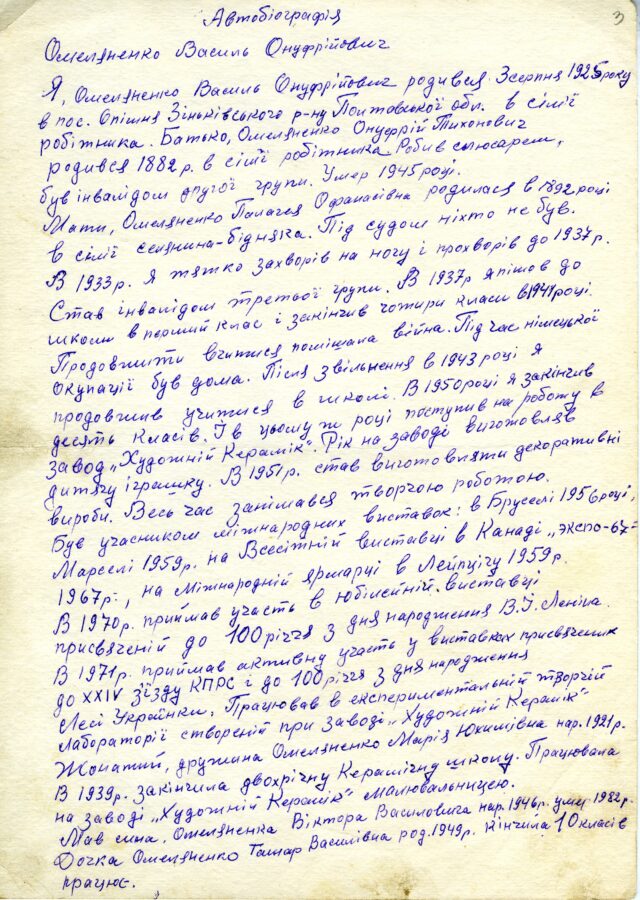 3
Автобіографія
Омеляненко Василь Онуфрійович
Я, Омеляненко Василь Онуфрійович родився 3 серпня 1925 року
в пос. Опішня Зіньківського р-ну Полтавської обл. в сім'ї
робітника. Батько, Омеляненко Онуфрій Тихонович
родився 1882 р. в сім'ї робітника. Робив слюсарем,
був інвалідом другої групи. Умер 1945 році.
Мати, Омеляненко Палагея Офанасівна родилася в 1892 році
в сім'ї селянина-бідняка. Під судом ніхто не був.
В 1933 р. я тяжко захворів на ногу і прохворів до 1937 р.
Став інвалідом третьої групи. В 1937 р я пішов до
школи в перший клас і закінчив чотири класи в 1941 році.
Продовжити вчитися помішала війна. Під час німецької
окупації був дома. Після звільнення в 1943 році я
продовжив учитися в школі. В 1950 році я закінчив
десять класів. І в цьому ж році поступив на роботу в
завод „Художній Керамік". Рік на заводі виготовляв
дитячу іграшку. В 1951 р. став виготовляти декоративні
вироби. Весь час занімався творчою роботою.
Був учасником міжнародних виставок: в Брусселі 1956 році,
Марселі 1959 р. на Всесітній виставці в Канаді „Экспо-67"
1967 р., на Міжнародній ярмарці в Лейпцігу 1959 р.
В 1970 р. приймав участь в юбілейній виставці
присвяченій до 100 річчя з дня народження В.І. Леніна.
В 1971 р. приймав активну участь у виставках присвячених
до XXIV з'їзду КПРС і до 100 річчя з дня народження
Лесі Українки. Працював в експериментальній творчій
лабораторії створеній при заводі „Художній Керамік"
Жонатий, дружина Омеляненко Марія Юхимівна нар. 1921 р.
В 1939 р. закінчила двохрічну Керамічну школу. Працювала
на заводі „Художній Керамік" малювальницею.
Мав сина, Омеляненка Віктора Васильовича нар. 1946 р. умер 1982 р.
Дочка Омеляненко Тамар Василівна род. 1949 р. кінчила 10 класів
працює.